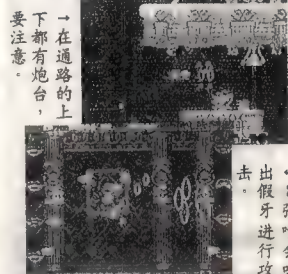 →在通路的上
下都有炮台，
要注意。
出假牙进行攻
击。